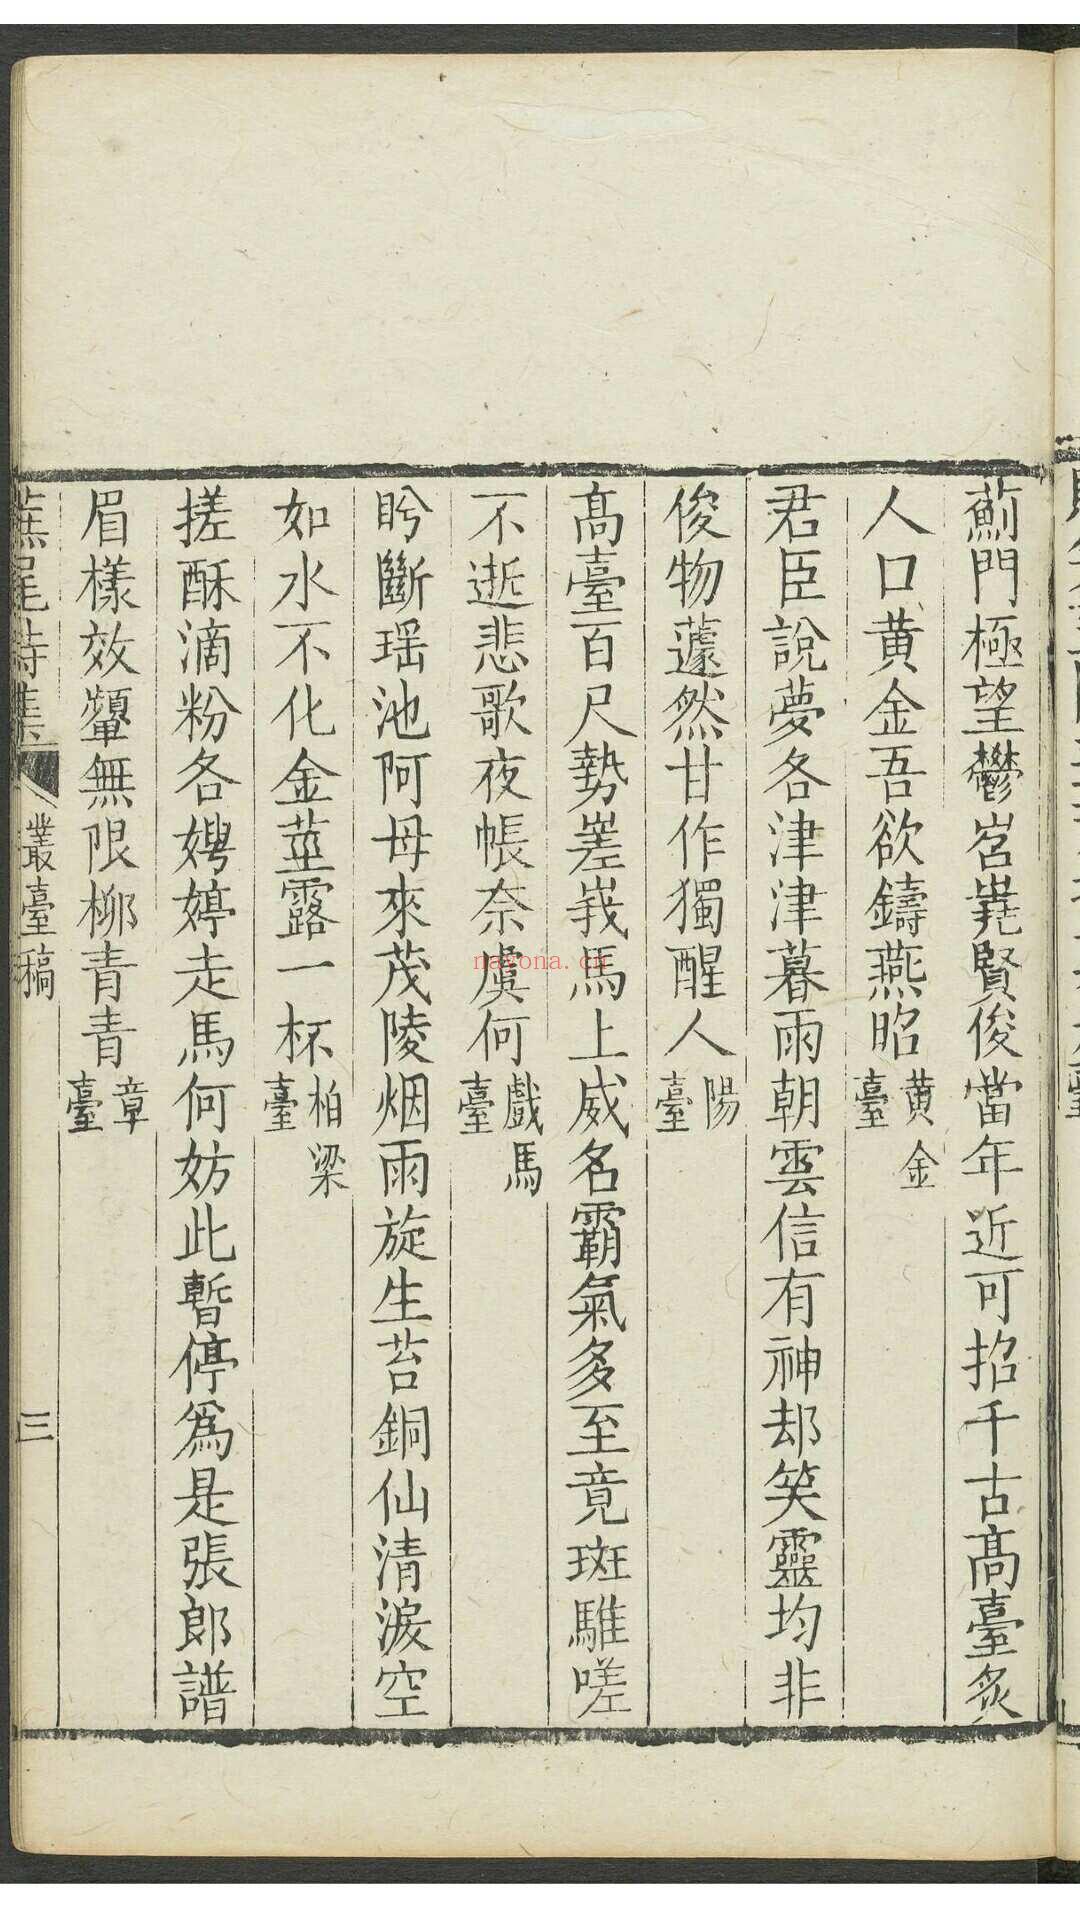 薊門極望鬱岧嶤賢俊當年近可招千古高臺炙
人口黄金吾欲鑄燕昭黄金臺
君臣說夢各津津暮雨朝雲信有神却笑靈均非
俊物蘧然甘作獨醒人陽臺
高臺百尺勢嵳峩馬上威名霸氣多至竟斑騅嗟
不逝悲歌夜帳奈虞何戲馬臺
盻斷瑶池阿母來茂陵烟雨旋生苔銅仙清淚空
如水不化金莖露一杯柏梁臺
搓酥滴粉各娉婷走馬何妨此暫停爲是張郎譜
眉樣效顰無限柳青青章臺
叢臺稿
三
nayona.cn